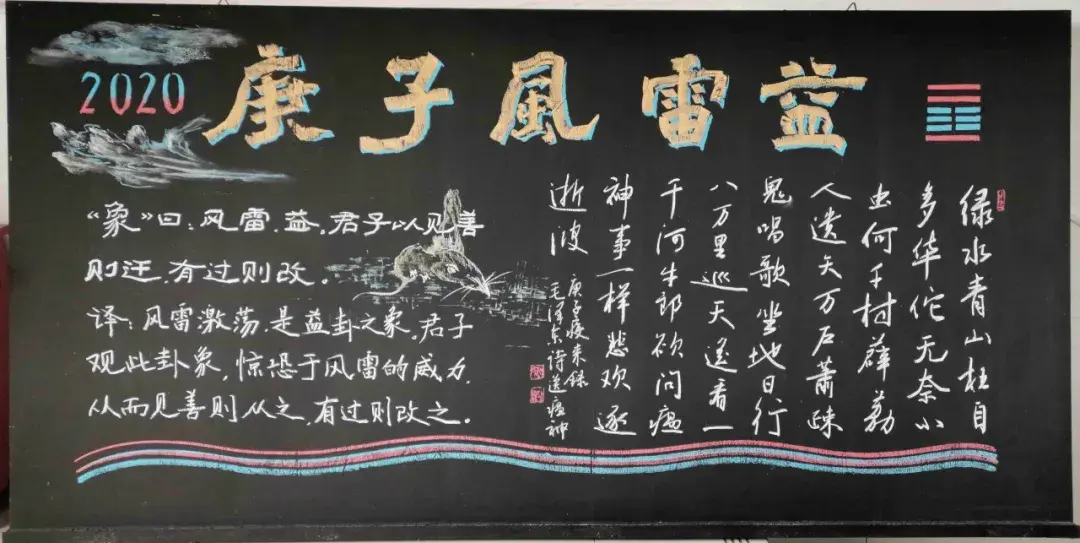 2020
庚子風雷益
“象”曰：风雷，益，君子以见善
则迁，有过则改。
译：风雷激荡，是益卦之象，君子
观此卦象，惊恐于风雷的威力，
从而见善则从之，有过则改之。
绿水青山枉自
多华佗无奈小
虫何千村薜荔
人遗矢万户萧疏
鬼唱歌坐地日行
八万里巡天遥看一
千河牛郎欲问瘟
神事一样悲欢逐
逝波
庚子疫来录
毛泽东诗送瘟神